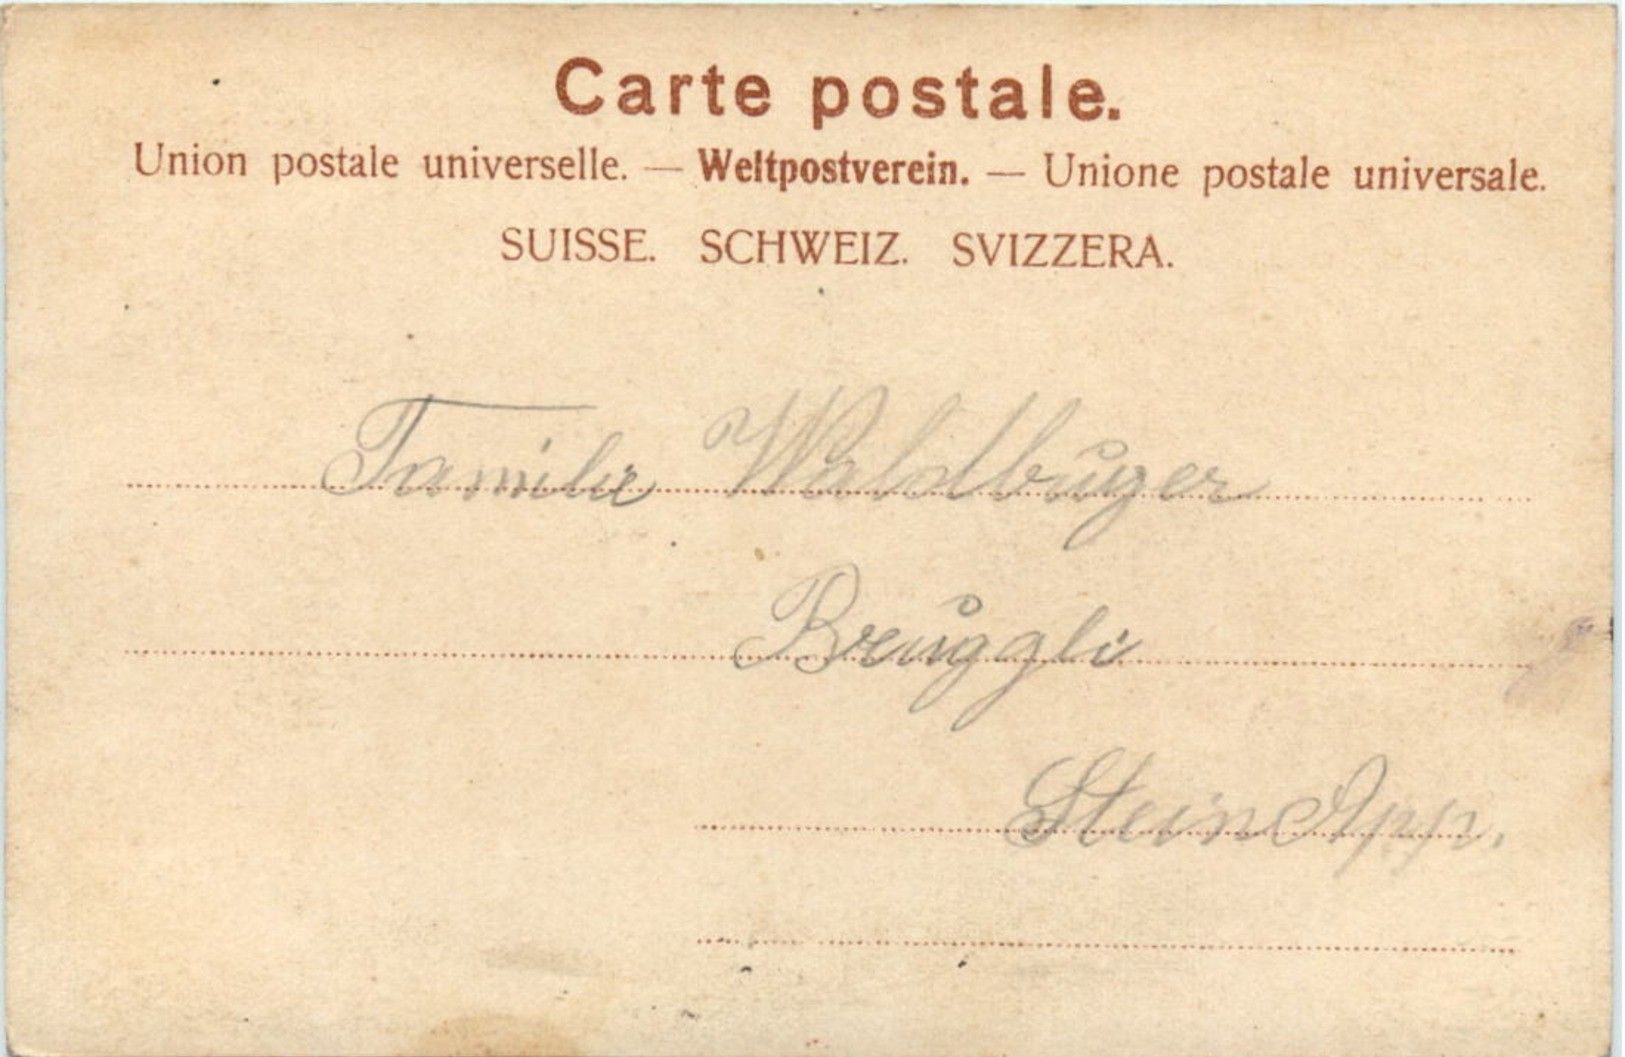 Carte postale.
Union postale universelle. — Weltpostverein. — Unione postale universale.
SUISSE. SCHWEIZ. SVIZZERA.
Familie Waldbuger
Bruggli
Stein App.